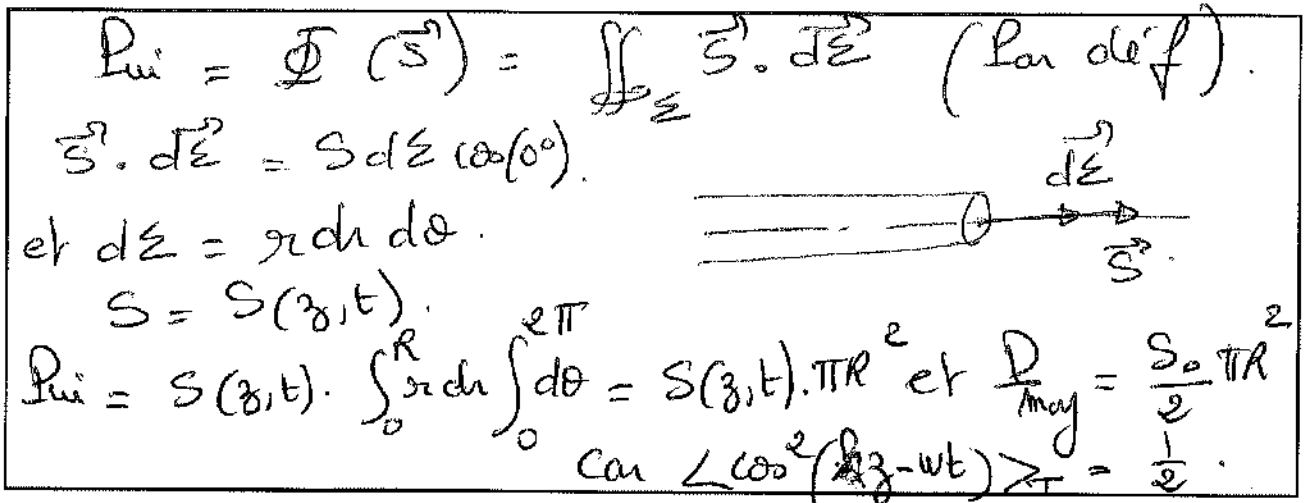 Pui = Φ (S⃗) = ∬_Σ S⃗ . dΣ⃗ (Par déf).
S⃗ . dΣ⃗ = S dΣ cos(0°).
dΣ⃗
et dΣ = r dr dθ.
S⃗
S = S(z,t).
Pui = S(z,t). ∫₀^R r dr ∫₀^2π dθ = S(z,t). πR² et P_moy = S₀/2 πR²
Car <cos²(kz-wt)>_T = 1/2.